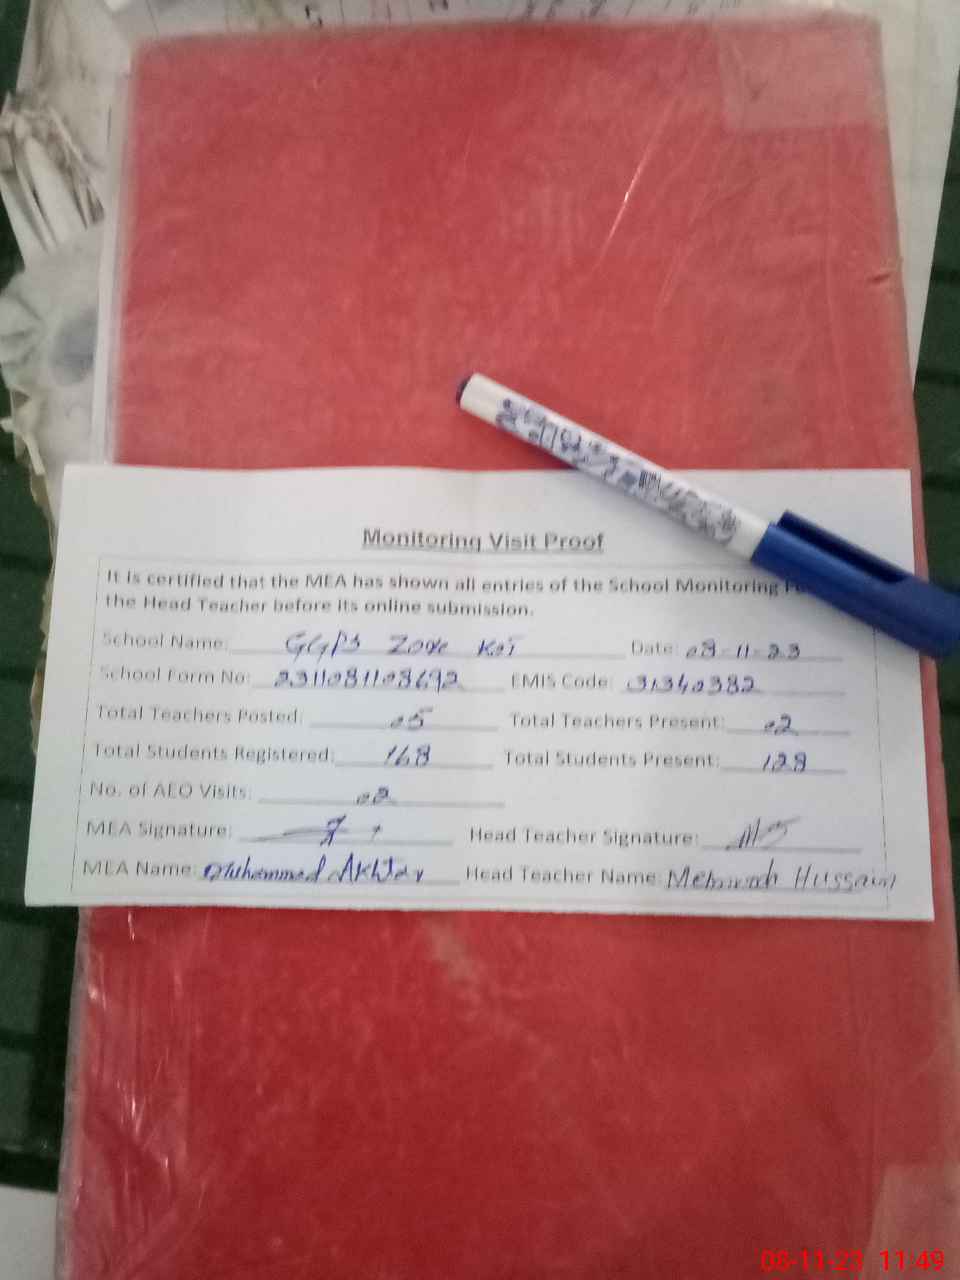 5
Monitoring Visit Proof
It is certified that the MEA has shown all entries of the School Monitoring
the Head Teacher before its online submission.
School Name: GGPS Zour Kot Date: 08-11-23
School Form No: 2311081108692 EMIS Code: 31340382
Total Teachers Posted: 05 Total Teachers Present: 02
Total Students Registered: 168 Total Students Present: 128
No. of AEO Visits: 02
MEA Signature: Head Teacher Signature:
MEA Name: Muhammad Akhtar Head Teacher Name: Hussain
08-11-23 11:49